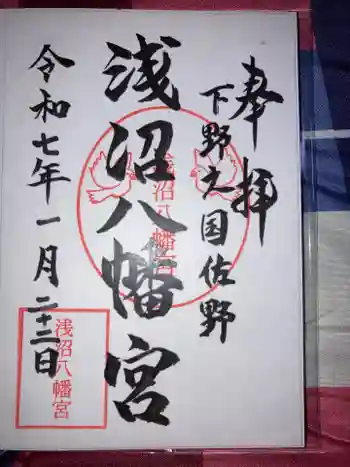 奉拝
下野之国佐野
浅沼八幡宮
浅沼八幡宮
令和七年一月二十二日
浅沼八幡宮